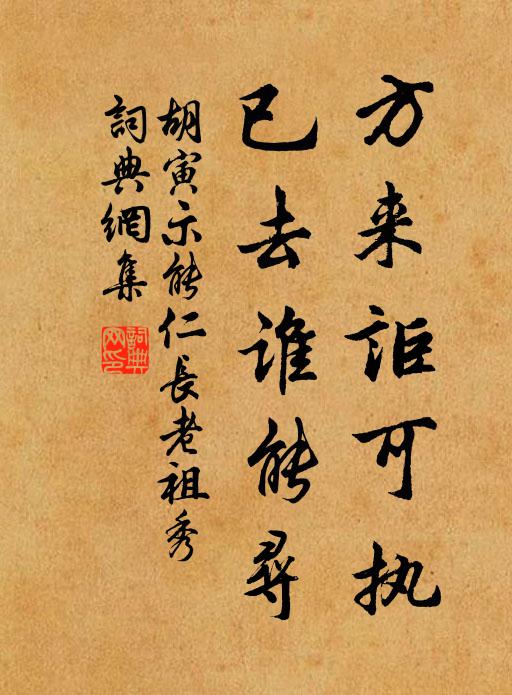 方来詎可执
已去谁能尋
胡寅示能仁長老祖秀
詞典網集
詞典网印